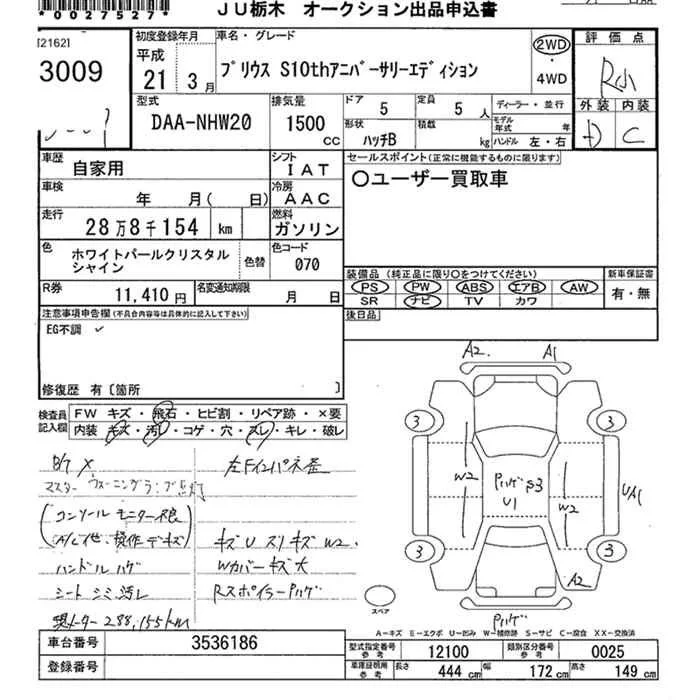 *0027527*
JU栃木 オークション出品申込書
[2162]
3009
初度登録年月
平成 21 3月
車名・グレード
プリウス S10thアニバーサリーエディション
2WD ・ 4WD
評価点
R小
外装 内装
D C
型式
DAA-NHW20
排気量
1500 CC
ドア 5
定員 5 人
形状 ハッチB
積載 kg
ディーラー・並行
モデル年式 年
ハンドル 左・右
車歴 自家用
シフト IAT
車検 年 月( 日)
冷房 AAC
走行 28万8千154 km
燃料 ガソリン
色 ホワイトパールクリスタルシャイン
色替
色コード 070
R券 11,410円
名変通知期限 月 日
セールスポイント(正常に機能するものに限ります)
〇ユーザー買取車
装備品(純正品に限り〇をつけてください)
PS PW ABS エアB AW
SR ナビ TV カワ
新車保証書
有・無
後日品
注意事項申告欄(不具合内容等は具体的に記入して下さい)
EG不調
修復歴 有[箇所 ]
検査員記入欄
FW キズ・飛石・ヒビ割・リペア跡・×要
内装 キズ・汚レ・コゲ・穴・スレ・キレ・破レ
マスターウォーニングランプ点灯
(コンソールモニター不良)
(A/C他、操作デキズ)
ハンドルハゲ
シートシミ汚レ
現メーター 288,155km
左Fインパネ歪
キズUスリキズW2.
Wカバーキズ大
RスポイラーPハゲ
A2. A1
3 3
W2 Pハゲ S3 U1 W2 UA1
3 3
A2
Pハゲ
スペア
A-キズ E-エクボ U-凹み W-補修跡 S-サビ C-腐食 XX-交換済
車台番号 3536186
登録番号
型式指定番号参考 12100
類別区分番号参考 0025
車庫証明用参考 長さ 444 cm 幅 172 cm 高さ 149 cm